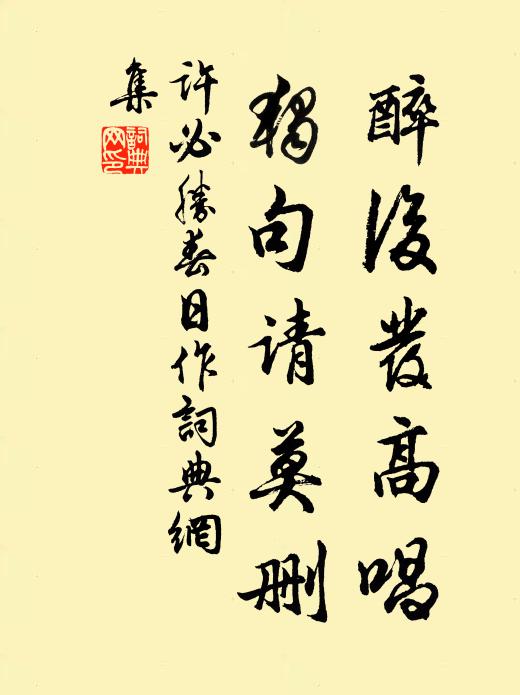 醉後發高唱
獨句請莫刪
許必勝春日作詞典網
集
詞典
网印